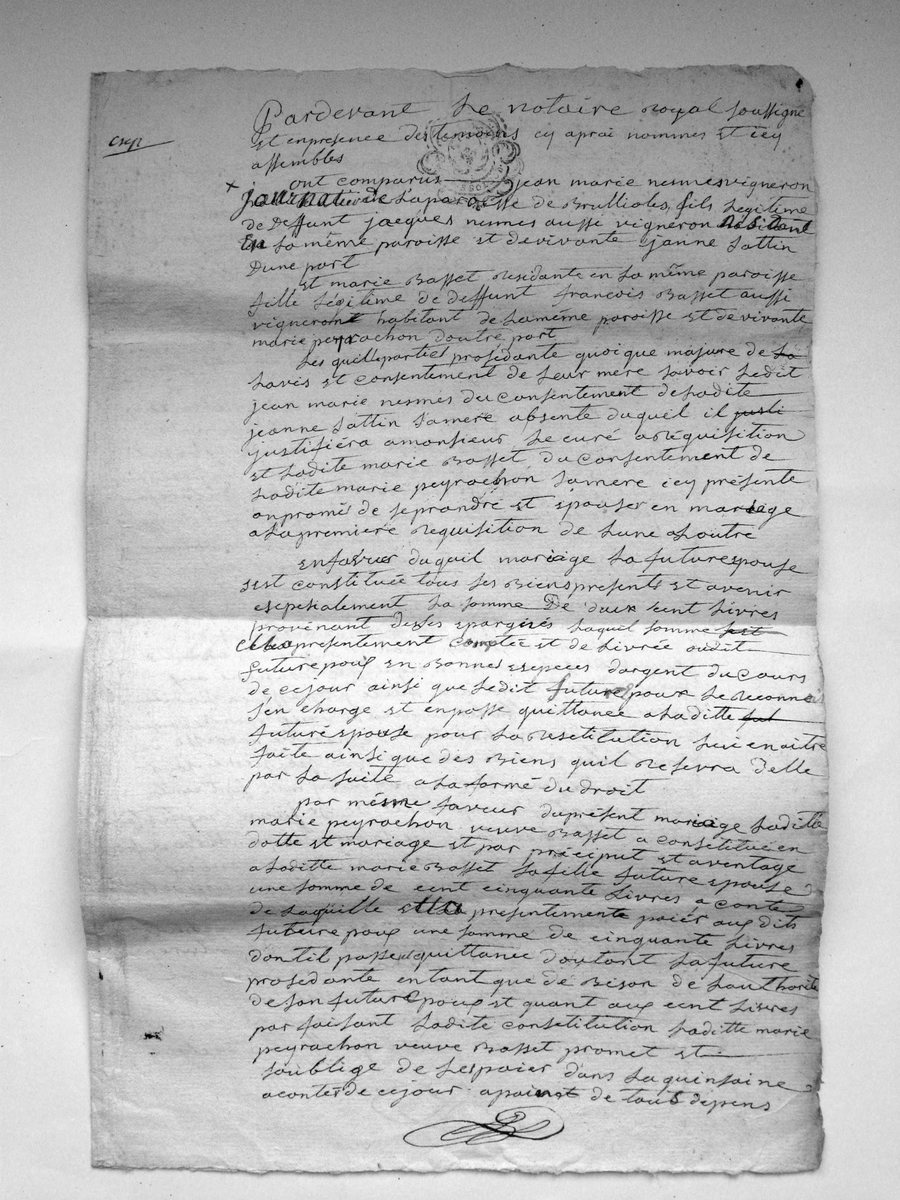 Pardevant Le notaire Royal soussigné
Et en presence des temoins cy aprai nommes Et icy
assembles
Cxep
ont comparus jean marie nesmes vigneron
de Laparoisse de Brullioles, fils Legitime
de Deffunt jacques nesmes aussi vigneron habitant
En La même paroisse Et de vivante janne Lattin
Dune part
Et marie Basset Residante en La même paroisse
fille Legitime de deffunt francois Basset aussi
vigneront habitant de La même paroisse Et de vivante
marie peyrachon doutre part
Les quille parties prosedante quoi que majure de La
Lavis Et consentement de Leur mere savoir Ledit
jean marie nesmes du consentement de Ladite
jeanne Lattin Samere absente duquel il justi
justifiera a monsieur Le curé a Réquisition
Et Ladite marie Basset du consentement de
Ladite marie peyrachon Samere icy présente
on promi de se prandre Et Epouser en mariage
a La premiere Requisition de Lune a Loutre
en faveur duquil mariage La future Epouse
sest constituée tous ses Biens presents Et avenir
Esepesialement La somme De deux cent Livres
provenant de ses Epargnes Laquil somme
presentement comptée Et de Livrée audit
futur Epoux En Bonnes Especes dargent du Cours
de ce jour ainsi que Ledit futur Epoux Le Reconnai
s'en charge Et en passe quittance a Laditte fut
future Epouse pour La Resetitution Lui en aitre
faite ainsi que des Biens quil Resevra Delle
par La suite a La forme du droit
par mésme faveur du présent mariage Laditte
marie peyrachon veuve Basset a constituée en
dotte Et mariage Et par préciput Et aventage
a Laditte marie Basset Sa fille future Epouse
une somme de cent cinquante Livres a conte
de Laquille Ella presentemente paiér aux dits
future Epoux une somme de cinquante Livres
dont il passe quittance doutant La future
prosedante en tant que de Beson de Lauthorité
de son futur Epoux Et quant aux cent Livres
par faisant Ladite constitution Laditte marie
peyrachon veuve Basset promet Et
soublige de Les paier dans La quinsaine
a conter de ce jour a paine de tous depens